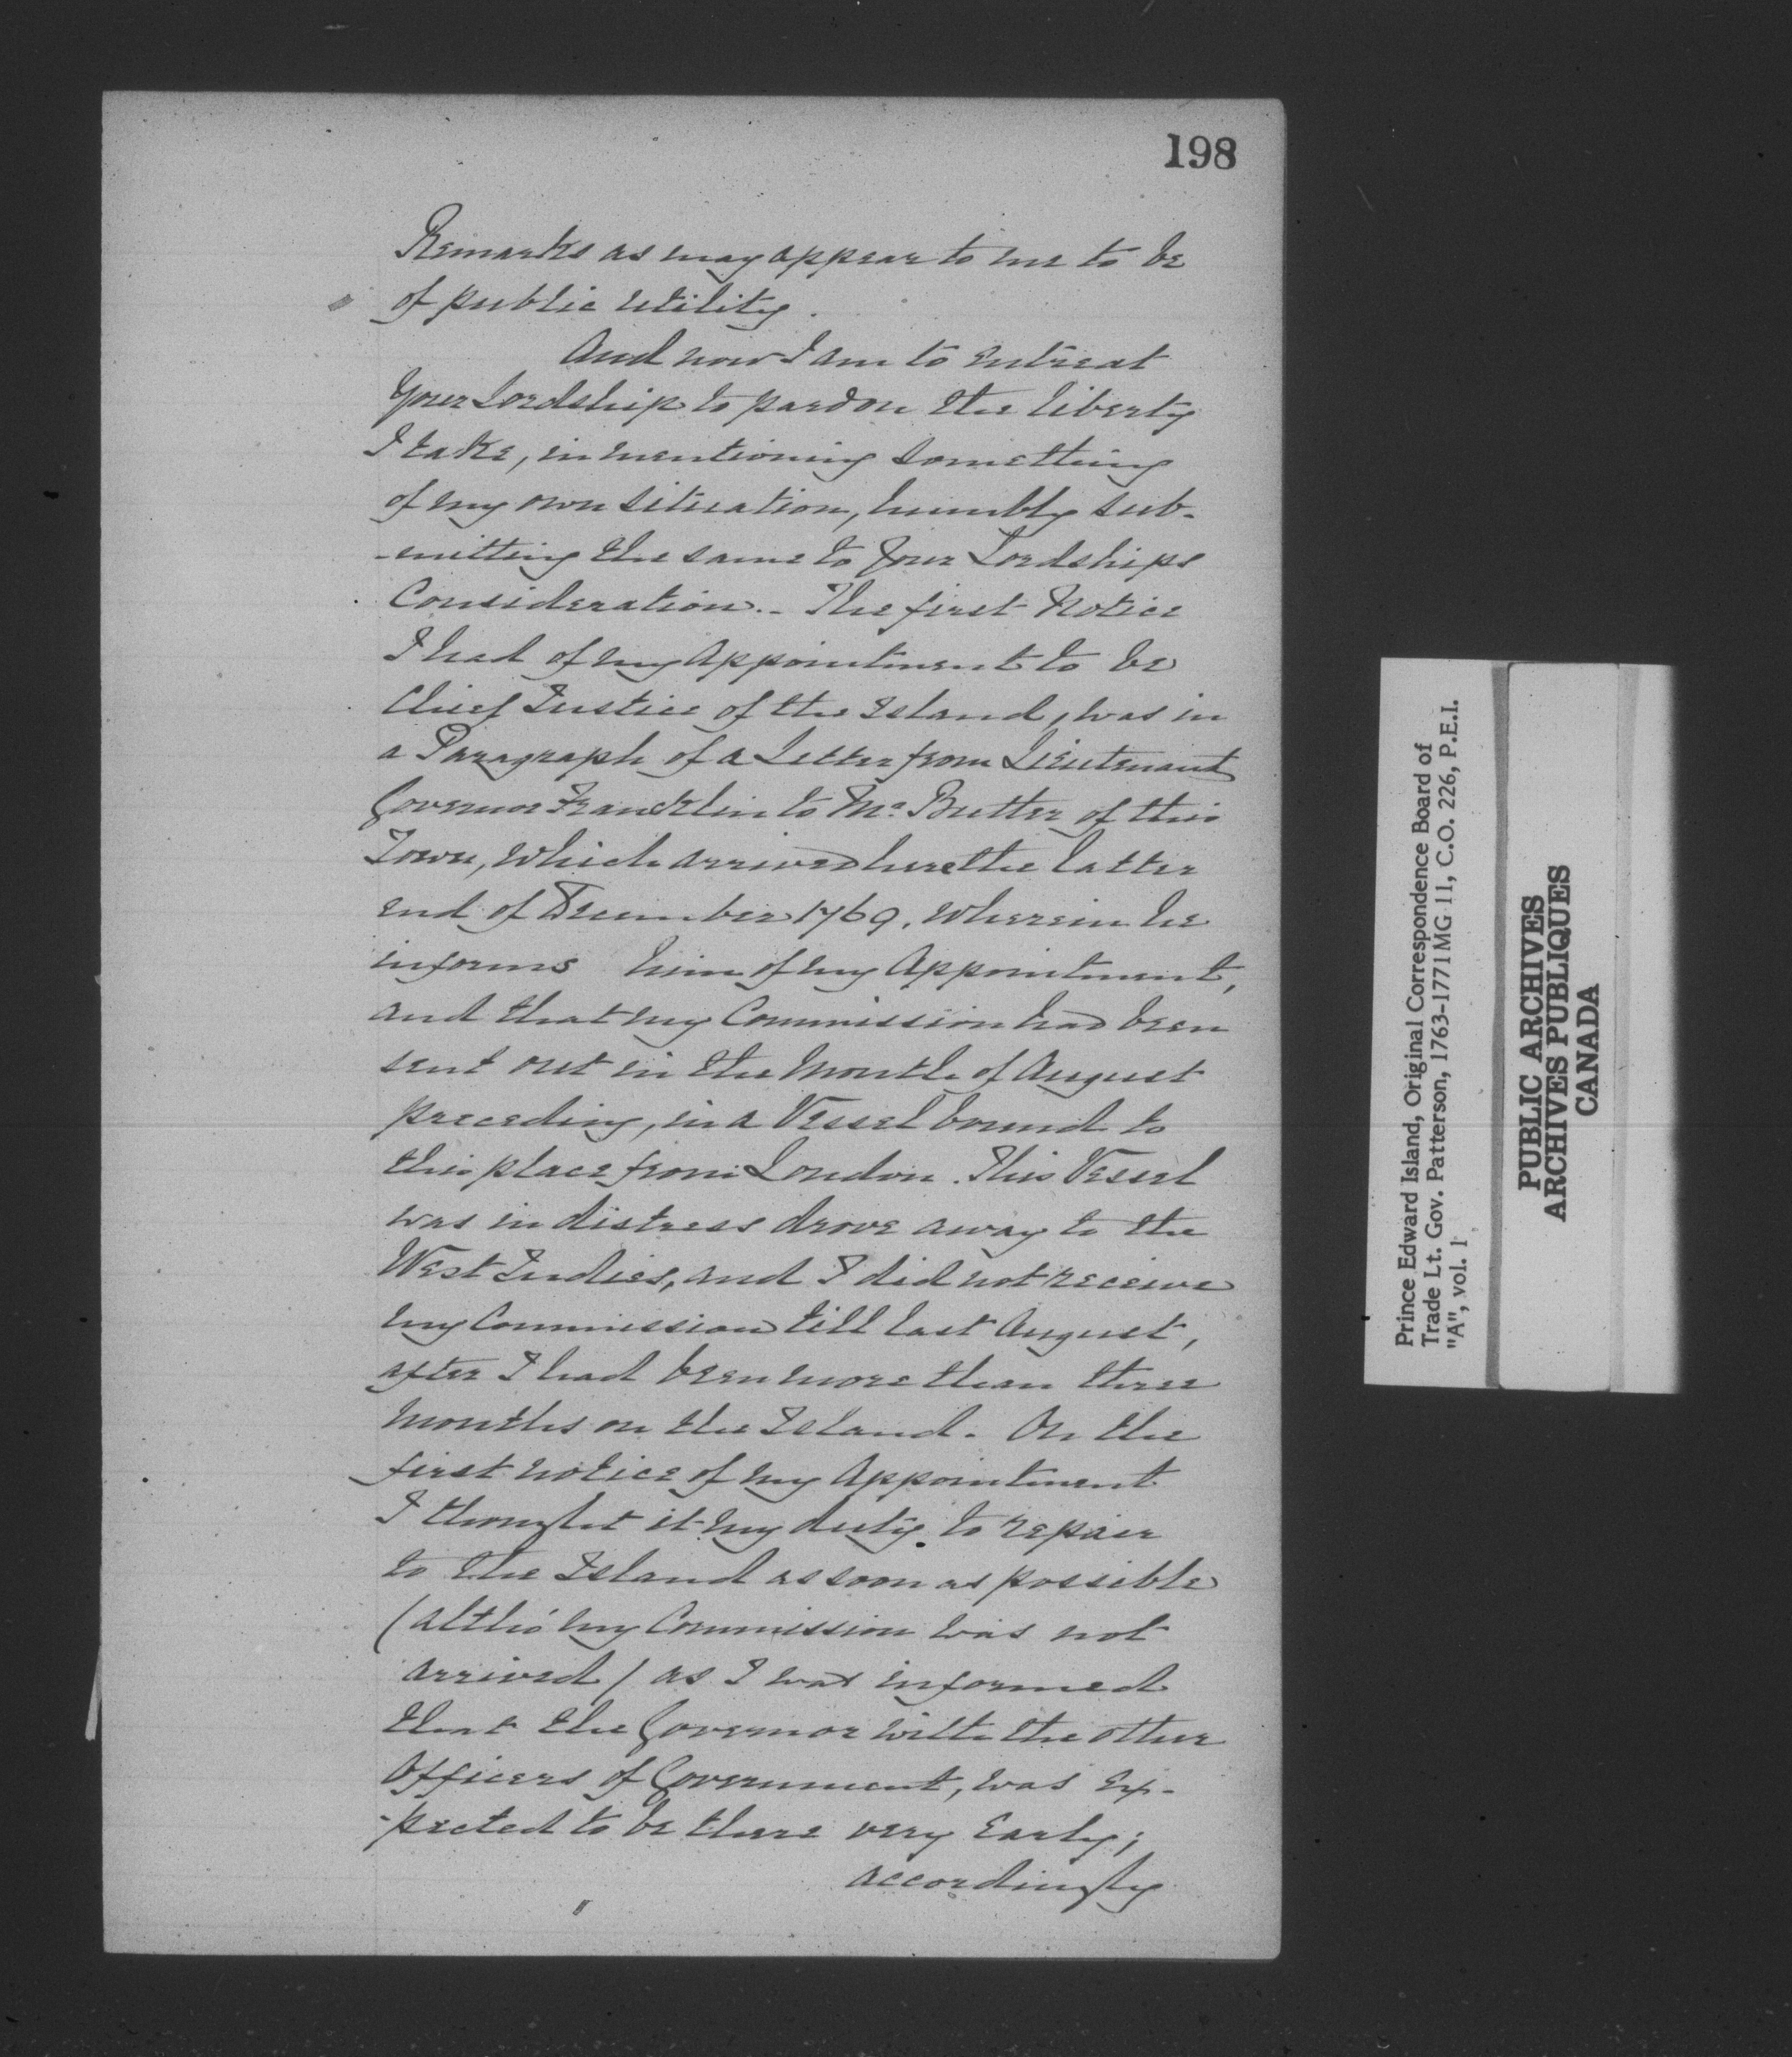 198
Remarks as may appear to me to be
of public utility.
And now I am to entreat
Your Lordship to pardon the liberty
I take, in mentioning something
of my own situation, humbly sub-
-mitting the same to Your Lordships
Consideration.- The first Notice
I had of my Appointment to be
Chief Justice of the Island, was in
a Paragraph of a Letter from Lieutenant
Governor Francklin to Mr. Butler of this
Town, which arrived here the latter
end of December 1769. Wherein he
informs him of my Appointment,
and that my Commission had been
sent out in the Month of August
preceding, in a Vessel bound to
this place from London. This Vessel
was in distress drove away to the
West Indies, and I did not receive
my Commission till last August,
after I had been more than three
Months on the Island. On the
first notice of my Appointment
I thought it my duty to repair
to the Island as soon as possible
(altho' my Commission was not
arrived) as I was informed
that the Governor with the other
Officers of Government, was ex-
-pected to be there very Early;
accordingly
Prince Edward Island, Original Correspondence Board of
Trade Lt. Gov. Patterson, 1763-1771 MG 11, C.O. 226, P.E.I.
"A", vol. 1
PUBLIC ARCHIVES
ARCHIVES PUBLIQUES
CANADA